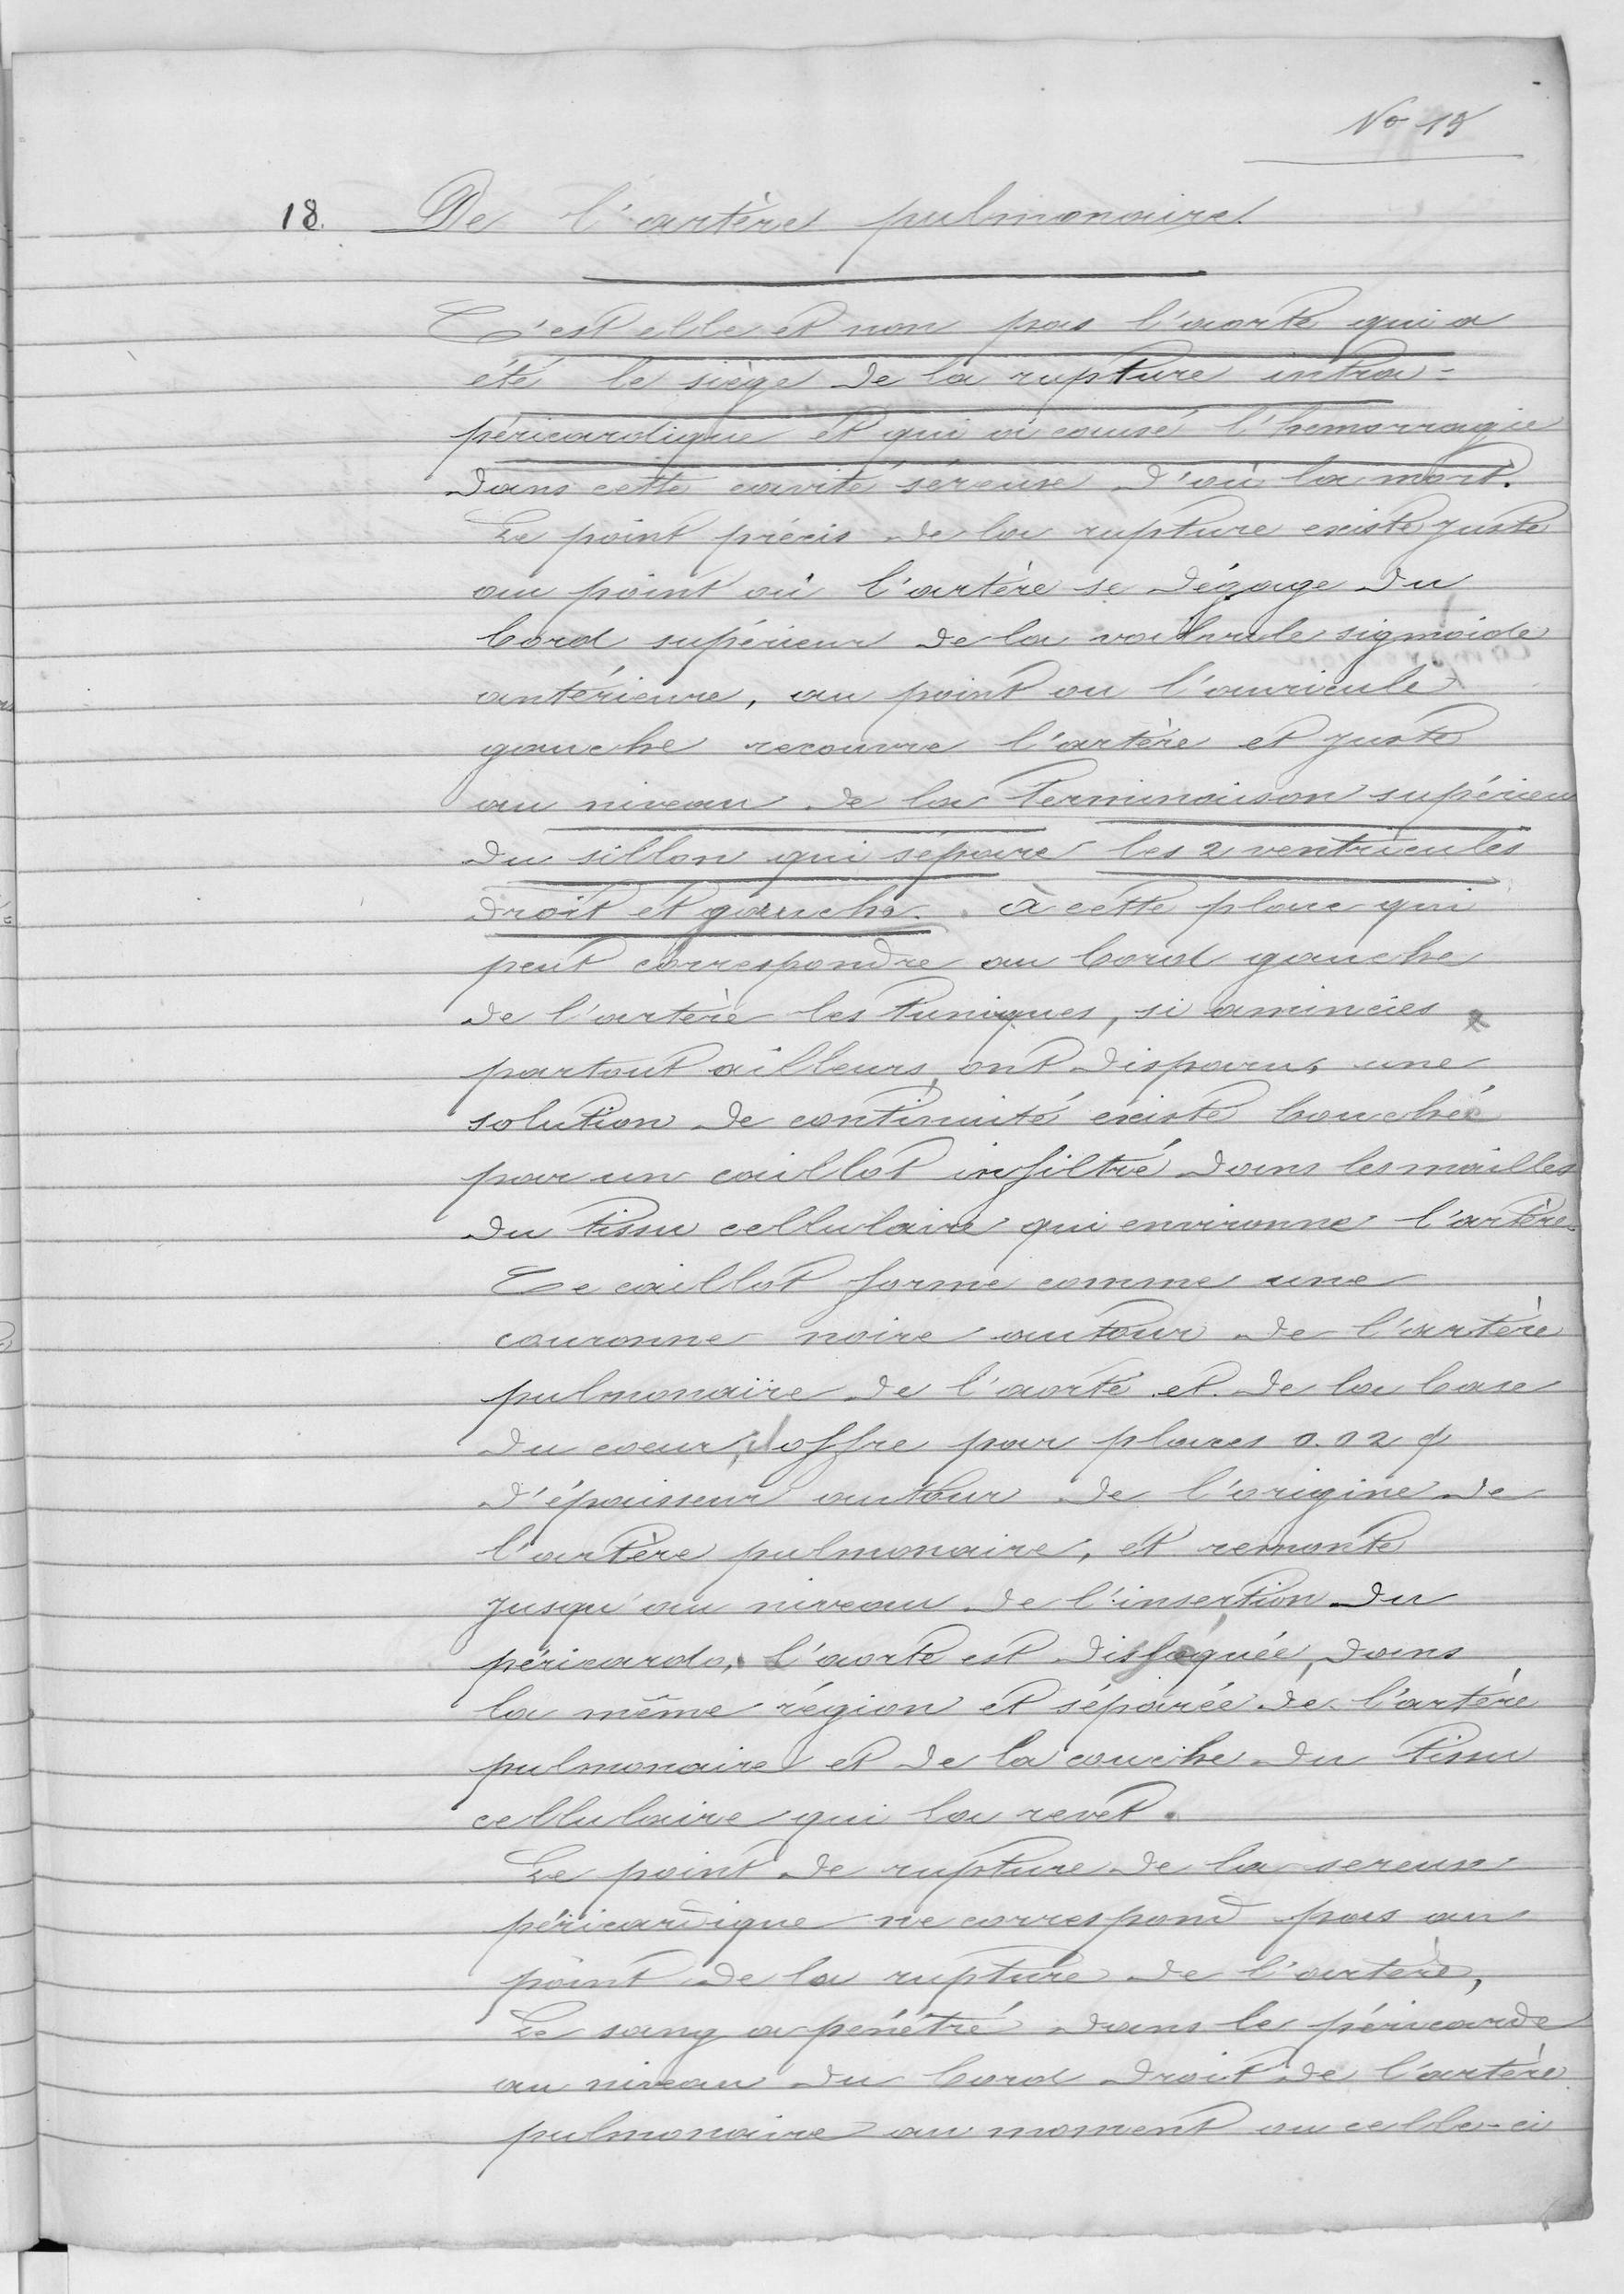 No 18
18. De l'artère pulmonaire.
C'est elle et non pas l'aorte qui a
été le siège de la rupture intra-
péricardique et qui a causé l'hemorragie
dans cette cavité séreuse d'où la mort.
Le point précis de la rupture existe juste
au point où l'artère se dégage du
bord supérieur de la valvule sigmoide
antérieure, au point ou l'auricule
gauche recouvre l'artère et juste
au niveau de la terminaison supérieu
du sillon qui sépare les 2 ventricules
droit et gauche. à cette place qui
peut correspondre au bord gauche
de l'artère les tuniques, si amincies
partout ailleurs, ont disparu, une
solution de continuité existe bouchée
par un caillot infiltré dans les mailles
du tissu cellulaire qui environne l'artère
Ce caillot forme comme une
couronne noire autour de l'artère
pulmonaire de l'aorte et de la base
du coeur, il offre par places 0.02 c
d'épaisseur autour de l'origine de
l'artère pulmonaire, et remonte
jusqu'au niveau de l'insertion du
péricarde, L'aorte est disséquée, dans
la même région et séparée de l'artère
pulmonaire et de la couche du tissu
cellulaire qui la revet.
Le point de rupture de la sereuse
péricardique ne correspond pas au
point de la rupture de l'artère,
Le sang a pénétré dans le péricarde
au niveau du bord droit de l'artère
pulmonaire au moment ou celle-ci